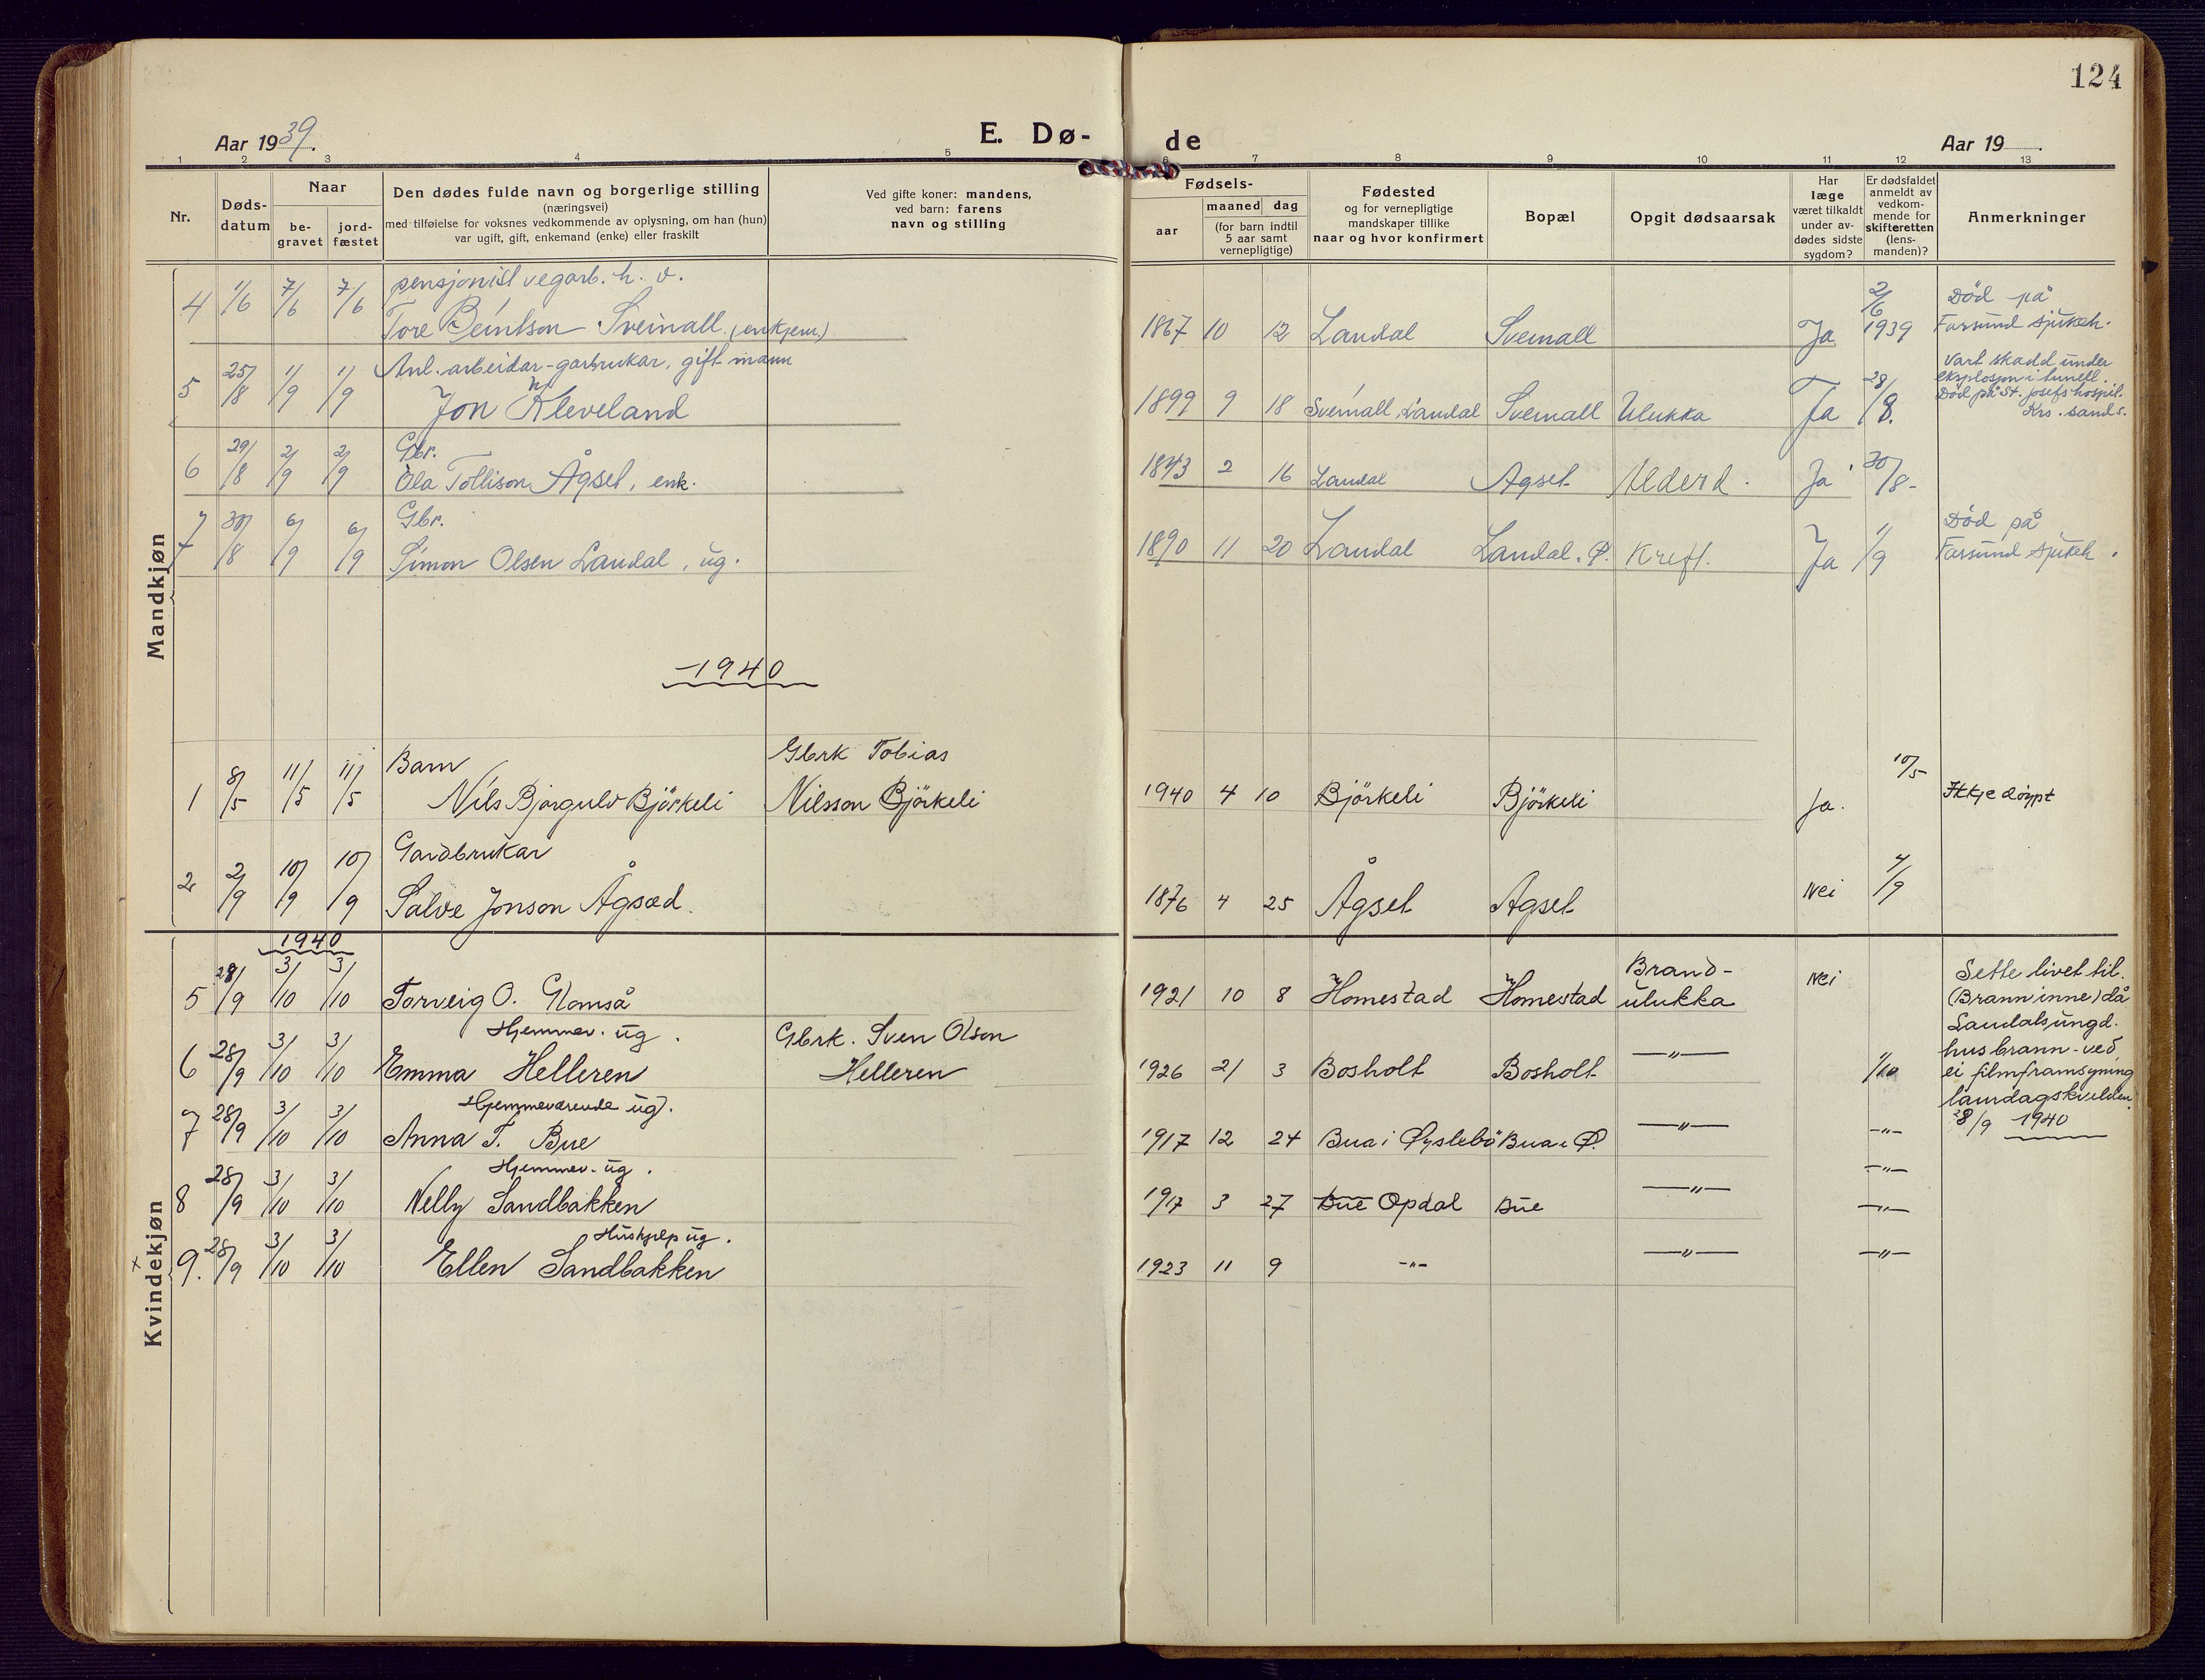 124
Aar 1939.
E. Dø-
de
Aar 19
1 2 3 4 5 6 7 8 9 10 11 12 13
Nr.
Døds-
datum
Naar
be-
gravet
jord-
fæstet
Den dødes fulde navn og borgerlige stilling
(næringsvei)
med tilføielse for voksnes vedkommende av oplysning, om han (hun)
var ugift, gift, enkemand (enke) eller fraskilt
Ved gifte koner: mandens,
ved barn: farens
navn og stilling
Fødsels-
aar
maaned dag
(for barn indtil
5 aar samt
vernepligtige)
Fødested
og for vernepligtige
mandskaper tillike
naar og hvor konfirmert
Bopæl
Opgit dødsaarsak
Har
læge
været tilkaldt
under av-
dødes sidste
sygdom?
Er dødsfaldet
anmeldt av
vedkom-
mende for
skifteretten
(lens-
manden)?
Anmerkninger
Mandkjøn
pensjonist vegarb. h. v.
4 1/6 7/6 7/6 Tore Beintson Sveinall (enkjem.) 1867 10 12 Laudal Sveinall Ja 2/6 1939 Død på
Farsund sjukeh.
Anl. arbeidar-garbrukar, gift mann
5 25/8 1/9 1/9 Jon Kleveland 1899 9 18 Sveinall, Laudal Sveinall Ulukka Ja 28/8. Vart skadd under
eksplosjon i tunell.
Død på St. Josefs hospit.
Krs. sands.
Gbr.
6 29/8 2/9 2/9 Ola Tollison Ågset, enk. 1843 2 16 Laudal Agset Alderd. Ja 30/8-
Gbr.
7 30/8 6/9 6/9 Simon Olsen Laudal, ug. 1890 11 20 Laudal Laudal. Ø. Kreft. Ja 1/9 Død på
Farsund sjukeh.
1940
Barn Gbrk Tobias
1 8/5 11/5 11/5 Nils Bjørgulv Björkeli Nilsson Björkeli 1940 4 10 Björkeli Björkeli Ja. 10/5 Ikkje döypt
Gardbrukar
2 2/9 10/9 10/9 Salve Jonson Ågsæd. 1876 4 25 Ågset Agset Nei 4/9
Kvindekjøn
1940
5 28/9 3/10 3/10 Torveig O. Homså 1921 10 8 Homestad Homestad Brand-
ulukka Nei
Hjemmev. ug.
6 28/9 3/10 3/10 Emma Helleren Gbrk. Sven Olson
Helleren 1926 21 3 Bosholt Bosholt —"— 1/10
Hjemmeværende ug.
7 28/9 3/10 3/10 Anna T. Bue 1917 12 24 Bua i Øyslebö Bua i Ø. —"— —"—
Hjemmev. ug. —"—
8 28/9 3/10 3/10 Nelly Sandbakken 1917 3 27 Bue Opdal Bue —"— —"—
Hushjelp ug.
9. 28/9 3/10 3/10 Ellen Sandbakken 1923 11 9 -"- —"— —"—
Sette livet til.
(Brann inne) då
Laudals ungd.
hus brann - ved
ei filmframsyning
laurdagskvelden
28/9 1940